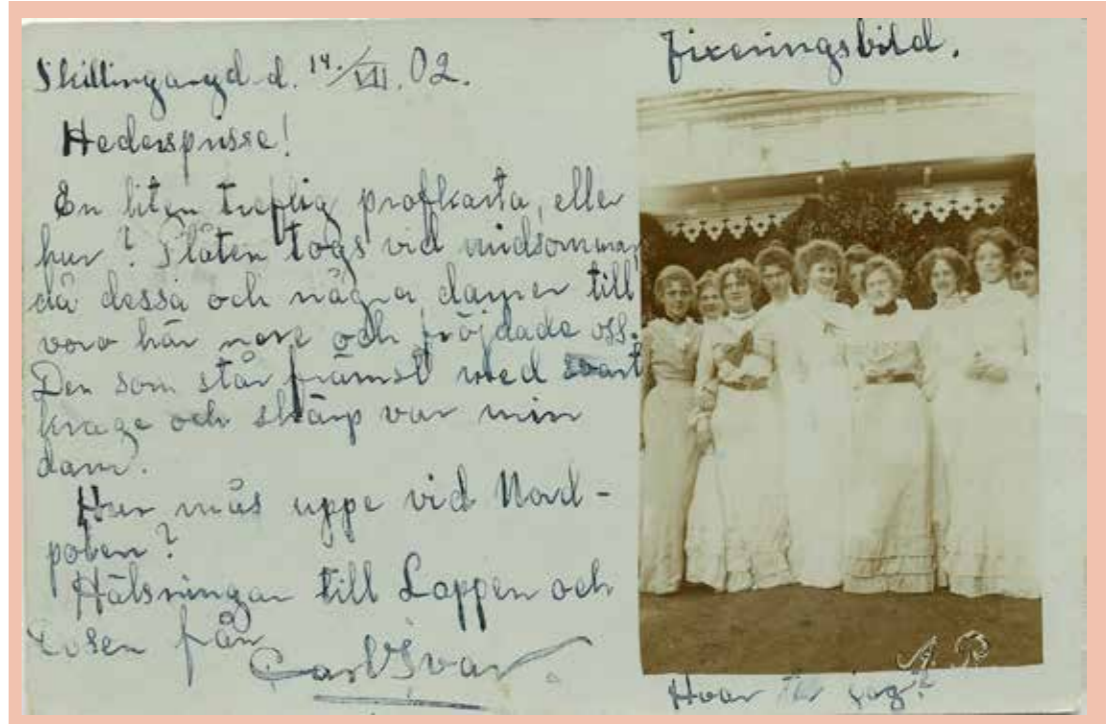 Skillingaryd d. 14./VII. 02.
Hederspisse!
En liten treflig profkarta, eller
hur? Plåten togs vid midsommar,
då dessa och några damer till
voro här nere och fröjdade oss.
Den som står främst med svart
krage och skärp var min
dam.
Hur mås uppe vid Nord-
polen?
Hälsningar till Lappen och
från
Carl Ivar.
Fixeringsbild.
A. P.
Hvar är jag?